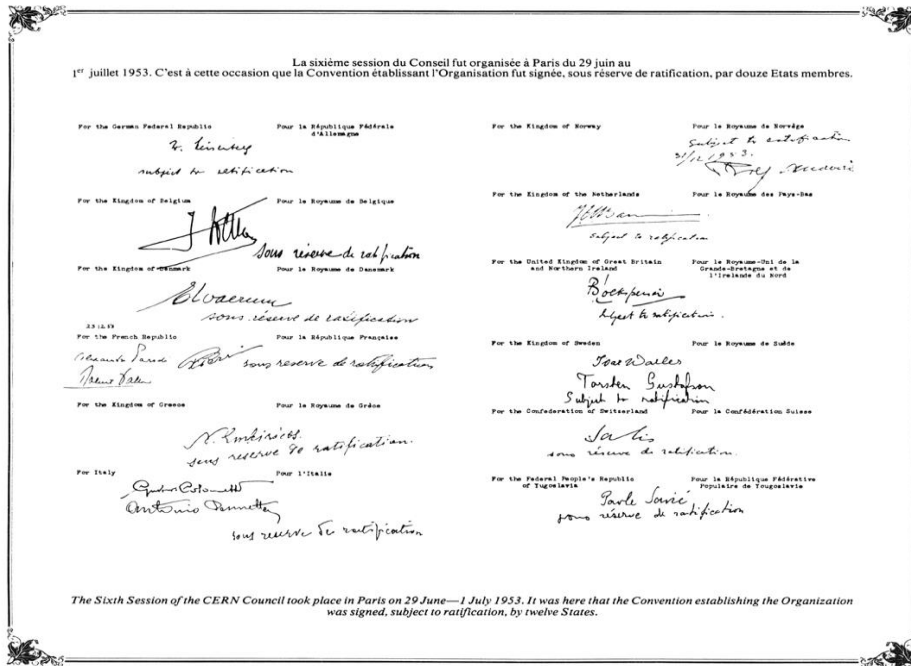 La sixième session du Conseil fut organisée à Paris du 29 juin au
1er juillet 1953. C'est à cette occasion que la Convention établissant l'Organisation fut signée, sous réserve de ratification, par douze Etats membres.
For the German Federal Republic Pour la République Fédérale
d'Allemagne
subject to ratification
For the Kingdom of Belgium Pour le Royaume de Belgique
sous réserve de ratification
For the Kingdom of Denmark Pour le Royaume de Danemark
sous réserve de ratification
23.12.53
For the French Republic Pour la République Française
sous reserve de ratification
For the Kingdom of Greece Pour le Royaume de Grèce
sous reserve de ratification.
For Italy Pour l'Italie
Antonio
sous reserve de ratification
For the Kingdom of Norway Pour le Royaume de Norvège
Subject to ratification
31/12 1953.
For the Kingdom of the Netherlands Pour le Royaume des Pays-Bas
subject to ratification
For the United Kingdom of Great Britain Pour le Royaume-Uni de la
and Northern Ireland Grande-Bretagne et de
l'Irlande du Nord
subject to ratification.
For the Kingdom of Sweden Pour le Royaume de Suède
Torsten Gustafson
Subject to ratification
For the Confederation of Switzerland Pour la Confédération Suisse
sous réserve de ratification.
For the Federal People's Republic Pour la République Fédérative
of Yugoslavia Populaire de Yougoslavie
Pavle Savić
sous réserve de ratification
The Sixth Session of the CERN Council took place in Paris on 29 June—1 July 1953. It was here that the Convention establishing the Organization
was signed, subject to ratification, by twelve States.